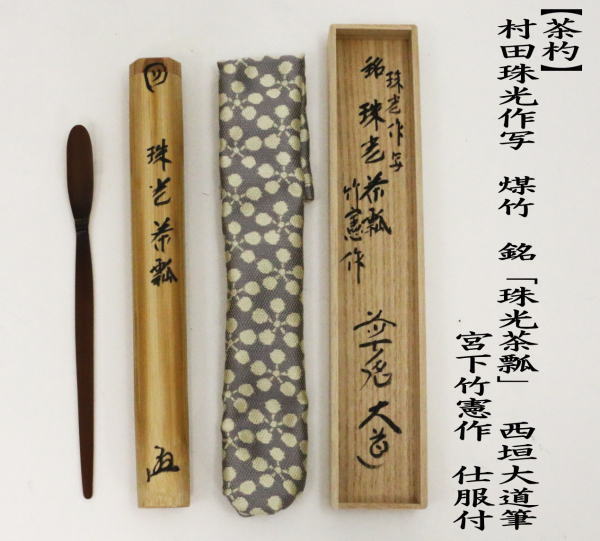 【茶杓】
村田珠光作写　煤竹　銘「珠光茶瓢」　西垣大道筆
宮下竹憲作　仕服付
珠光作写
銘 珠光茶瓢
竹憲作
大道
珠光茶瓢